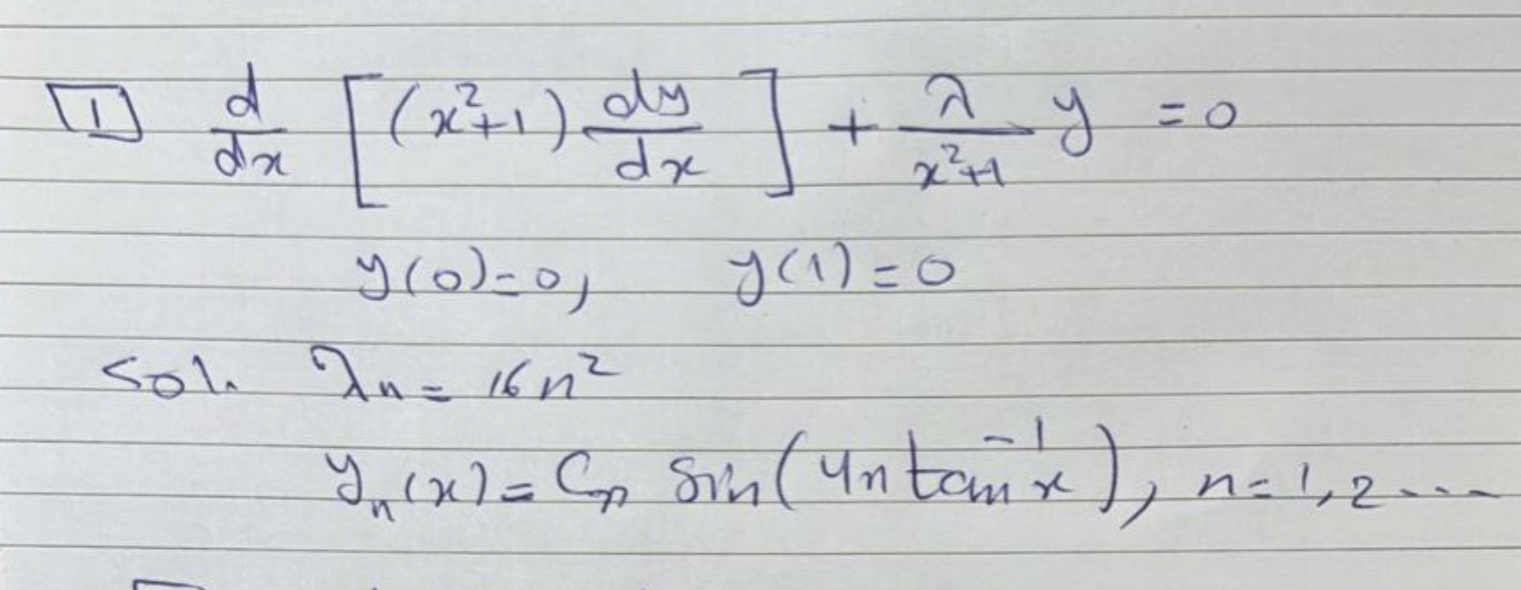 1 d/dx [(x²+1) dy/dx] + λ/(x²+1) y = 0
y(0)=0, y(1)=0
Sol. λn = 16n²
yn(x) = Cn Sin(4n tan⁻¹x), n=1,2...